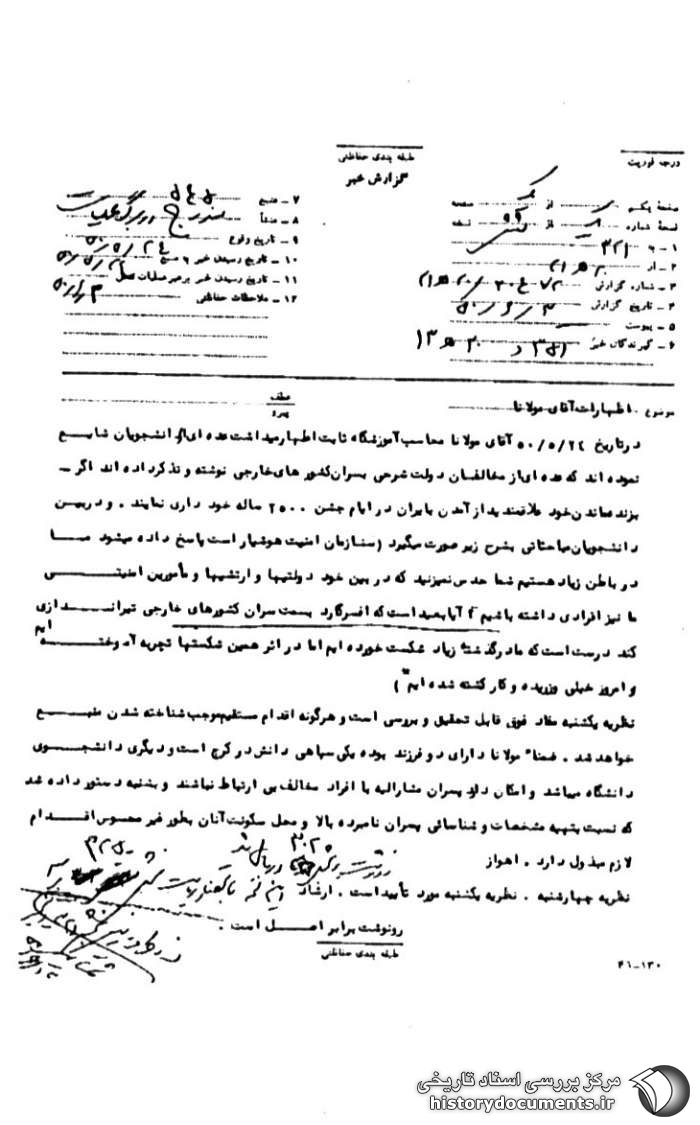 درجه فوریت
طبقه بندی حفاظتی
گزارش خبر
صفحهٔ یکم از صفحه
نسخهٔ شماره از نسخه
۱ - به ۳۲۱
۲ - از ۲۰ ه ۲۱
۳ - شماره گزارش
۴ - تاریخ گزارش ۵۰/۶/۳
۵ - پیوست
۶ - گیرندگان خبر
۷ - منبع
۸ - منشأ مندرج در برگ
۹ - تاریخ وقوع
۱۰ - تاریخ رسیدن خبر به منبع ۵۰/۵/۲۴
۱۱ - تاریخ رسیدن خبر به رهبر عملیات
۱۲ - ملاحظات حفاظتی
موضوع : اظهارات آقای مولانا
عطف
پیرو
در تاریخ ۵۰/۵/۲٤ آقای مولانا محاسب آموزشگاه ثابت اظهار میداشت عده ای از دانشجویان شایع
نموده اند که عده ای از مخالفان دولت شرحی بسران کشورهای خارجی نوشته و تذکر داده اند اگر -
بزنده ماندن خود علاقمندید از آمدن بایران در ایام جشن ۲۵۰۰ ساله خود داری نمایند . و در بین
دانشجویان مباحثاتی بشرح زیر صورت میگیرد (سازمان امنیت هوشیار است پاسخ داده میشود ما
در باطن زیاد هستیم شما حدس نمیزنید که در بین خود دولتیها و ارتشیها و مأمورین امنیتی
ما نیز افرادی داشته باشیم ؟ آیا بعید است که افسر گارد بسمت سران کشورهای خارجی تیراندازی
کند درست است که ما در گذشته زیاد شکست خورده ایم اما در اثر همین شکستها تجربه آموخته ایم
و امروز خیلی ورزیده و کار کشته شده ایم )
نظریه یکشنبه مفاد فوق قابل تحقیق و بررسی است و هرگونه اقدام مستقیم موجب شناخته شدن منبع
خواهد شد . ضمنا" مولانا دارای دو فرزند بوده یکی سپاهی دانش در کرج است و دیگری دانشجوی
دانشگاه میباشد و امکان دارد پسران مشارالیه با افراد مخالف بی ارتباط نباشند و بشنبه دستور داده شد
که نسبت بتهیه مشخصات و شناسائی پسران نامبرده بالا و محل سکونت آنان بطور غیر محسوس اقدام
لازم مبذول دارد . اهواز
نظریه چهارشنبه . نظریه یکشنبه مورد تأیید است . ارشاد
رونوشت برابر اصل است .
طبقه بندی حفاظتی
۲۱-۱۳۰
مرکز بررسی اسناد تاریخی
historydocuments.ir